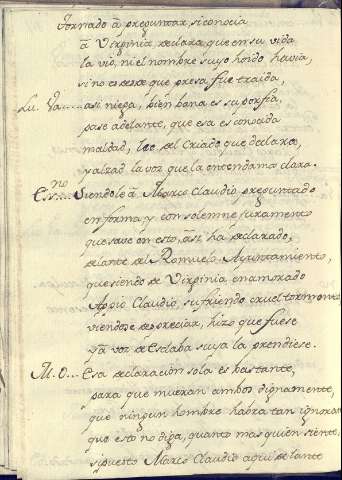 Tornado â preguntar, si conocia
â Virginia declara que en su vida
la vio, ni el nombre suyo hoido havia,
si no es desde que presa fue traida,
Lu. Va.... asi niega, bien bana es su porfia,
pase adelante, que esa es conocida
maldad, lee del Criado que declara,
y alzad la voz que la entendamos clara.
Es.no.... Siendole â Marco Claudio preguntado
en forma y con solemne juramento
que save en esto, âsi ha declarado,
delante de Romuelo Ayuntamiento,
que siendo de Virginia enamorado
Appio Claudio, sufriendo cruel tormento
viendose despreciar, hizo que fuese
ya voz de esclaba suya la prendiese.
M. O... Esa declaracion sola es bastante,
para que mueran ambos dignamente,
que ningun hombre habra tan ignoran
que esto no diga, quanto mas quien siente,
supuesto Marco Claudio aqui delante